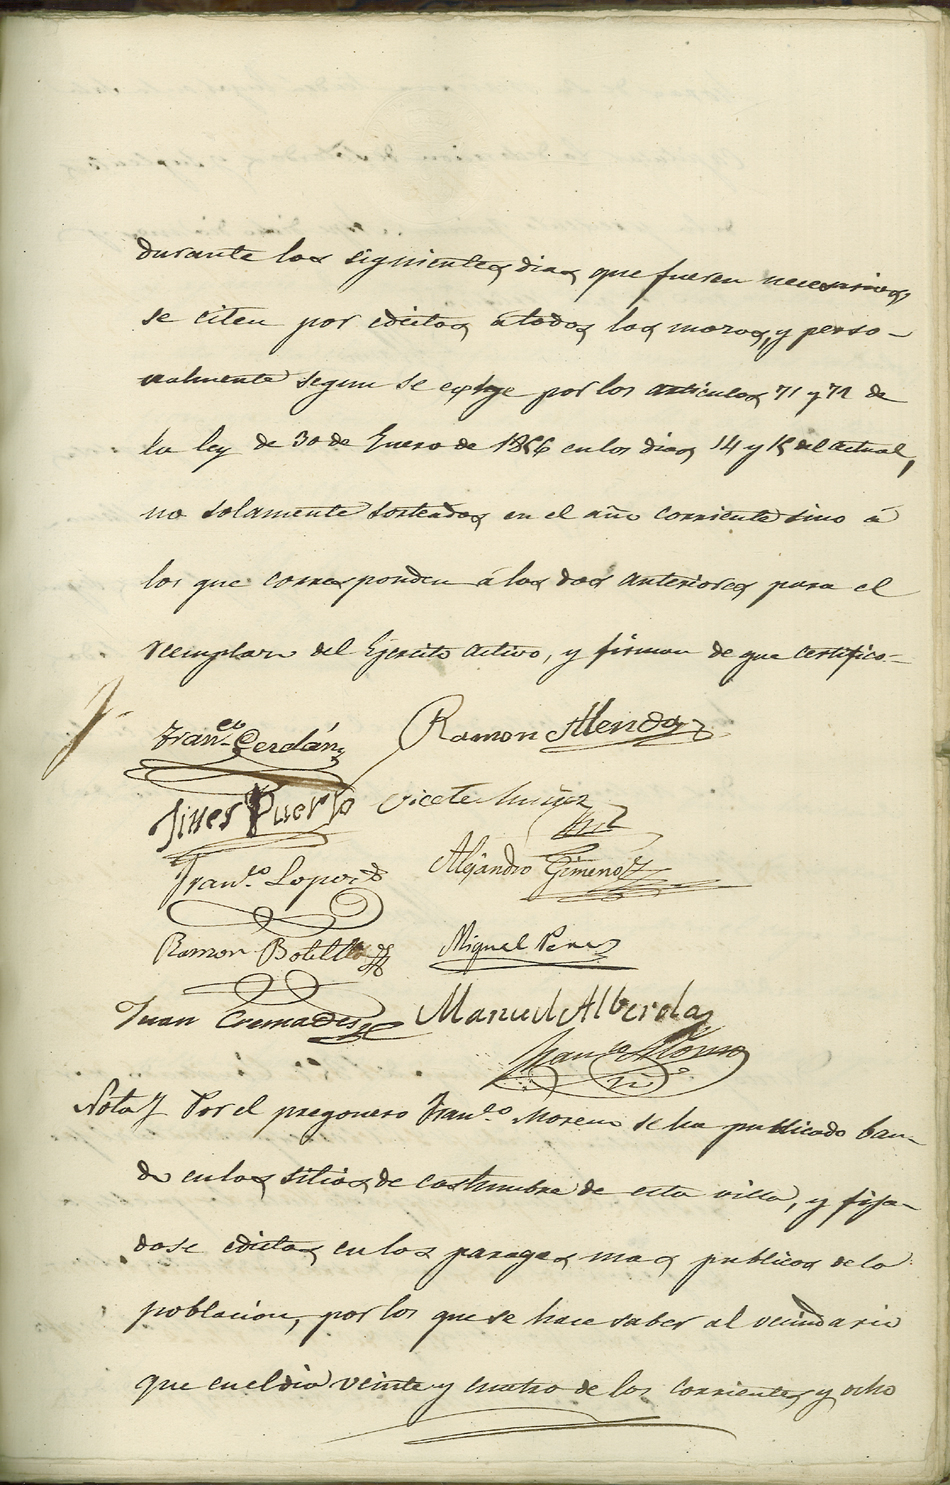 durante los siguientes dias que fueren necesarios,
se citen por edictos á todos los mozos, y perso-
nalmente segun se exige por los articulos 71 y 72 de
la ley de 30 de Enero de 1856 en los dias 14 y 15 del actual,
no solamente sorteados en el año corriente sino á
los que corresponden á los dos anteriores para el
reemplazo del Ejercito activo, y firman de que certifico=
Fran.co Cerdán Ramon Alenda
Jines Puerto Vicete
Fran.co Lopez Alejandro Gimenez
Ramón Botella Miguel Perez
Juan Cremades Manuel Alberola
Fran.co Alonso
Nota Por el pregonero Fran.co Moreno se ha publicado ban-
do en los sitios de costumbre de esta villa, y fija-
dose edictos en los parages mas publicos de la
poblacion, por los que se hace saber al vecindario
que en el dia veinte y cuatro de los corrientes y ocho